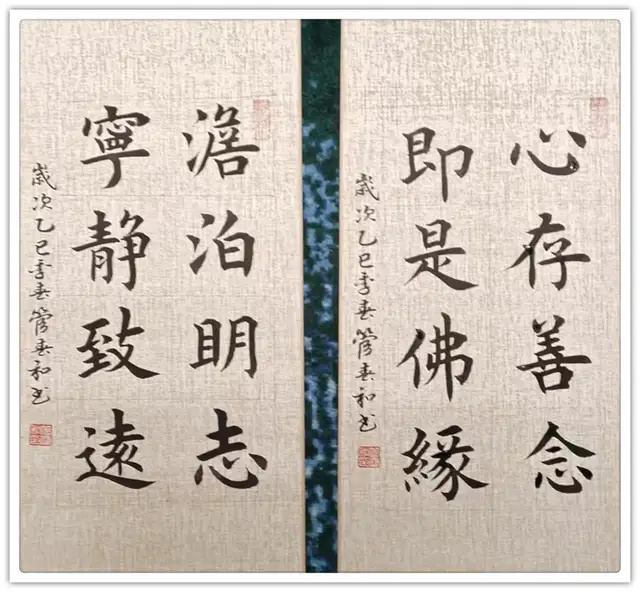 心存善念
即是佛緣
歲次乙巳季春管春和书
澹泊明志
寧静致遠
歲次乙巳季春管春和书